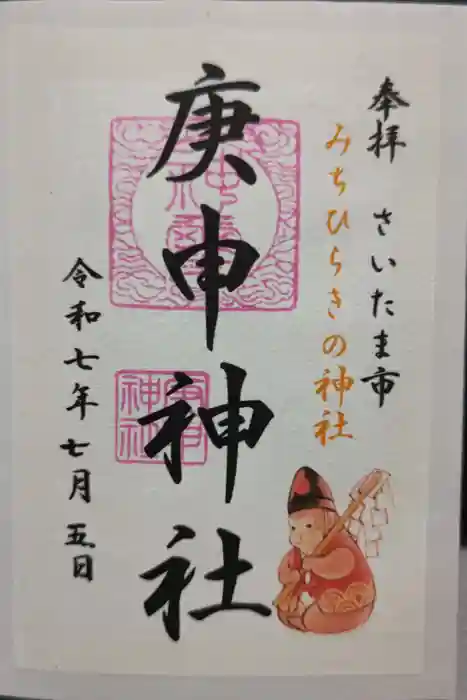 奉拝 さいたま市
みちひらきの神社
庚申神社
令和七年七月五日
庚申
神社